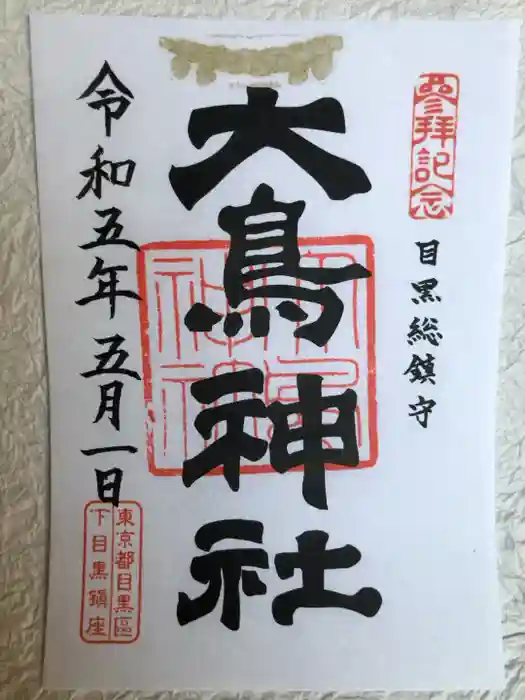 參拜記念
目黒総鎮守
大鳥神社
令和五年 五月一日
東京都目黒區
下目黒鎮座